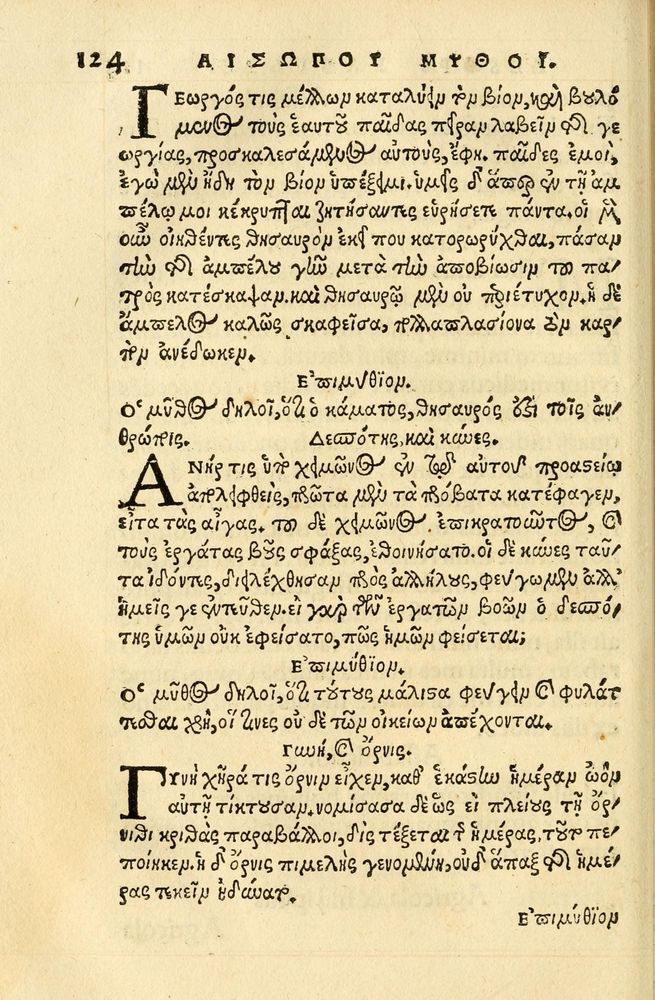 124 ΑΙΣΩΠΟΥ ΜΥΘΟΙ.
ΓΕωργός τις μέλλων καταλύειν τὸν βίον, καὶ βουλό
μενος τοὺς ἑαυτοῦ παῖδας πεῖραν λαβεῖν τῆς γε
ωργίας, προσκαλεσάμενος αὐτοὺς, ἔφη. παῖδες ἐμοὶ,
ἐγὼ μὲν ἤδη τὸν βίον ὑπέξειμι. ὑμεῖς δ᾽ ἅπερ ἐν τῇ ἀμ
πέλῳ μοι κέκρυπται ζητήσαντες εὑρήσετε πάντα. οἱ μὲν
οὖν οἰηθέντες θησαυρὸν ἐκεῖ που κατορωρύχθαι, πᾶσαν
τὴν τῆς ἀμπέλου γῆν μετὰ τὴν ἀποβίωσιν τοῦ πα/
τρὸς κατέσκαψαν. καὶ θησαυρῷ μὲν οὐ περιέτυχον. ἡ δὲ
ἄμπελος καλῶς σκαφεῖσα, πολλαπλασίονα τὸν καρ/
πὸν ἀνέδωκεν.
Ἐπιμύθϊον.
Ὁ μῦθος δηλοῖ, ὅτι ὁ κάματος, θησαυρός ἐστι τοῖς ἀν/
θρώποις. Δεσπότης, καὶ κύνες.
ΑΝήρ τις ὑπὸ χειμῶνος ἐν τῷ αὐτοῦ προαστείῳ
ἀποληφθεὶς, πρῶτα μὲν τὰ πρόβατα κατέφαγεν,
εἶτα τὰς αἶγας. τοῦ δὲ χειμῶνος ἐπικρατοῦντος, καὶ
τοὺς ἐργάτας βοῦς σφάξας, ἐθοινήσατο. οἱ δὲ κύνες ταῦ/
τα ἰδόντες, διελέχθησαν πρὸς ἀλλήλους, φεύγωμεν ἀλλ᾽
ἡμεῖς γε ἐντεῦθεν. εἰ γὰρ τῶν ἐργατῶν βοῶν ὁ δεσπό/
της ὑμῶν οὐκ ἐφείσατο, πῶς ἡμῶν φείσεται;
Ἐπιμύθϊον.
Ὁ μῦθος δηλοῖ, ὅτι τούτους μάλιστα φεύγειν καὶ φυλάτ
τεσθαι χρὴ, οἵτινες οὐδὲ τῶν οἰκείων ἀπέχονται.
Γυνὴ, καὶ ὄρνις.
ΓΥνὴ χήρα τις ὄρνιν εἶχεν, καθ᾽ ἑκάστην ἡμέραν ὠὸν
αὐτῇ τίκτουσαν. νομίσασα δὲ ὡς εἰ πλείους τῇ ὄρ/
νιθι κριθὰς παραβάλλοι, δὶς τέξεται τῆς ἡμέρας, τοῦτο πε/
ποίηκεν. ἡ δ᾽ ὄρνις πιμελὴς γενομένη, οὐδ᾽ ἅπαξ τῆς ἡμέ/
ρας τεκεῖν ἠδύνατο.
Ἐπιμύθϊον